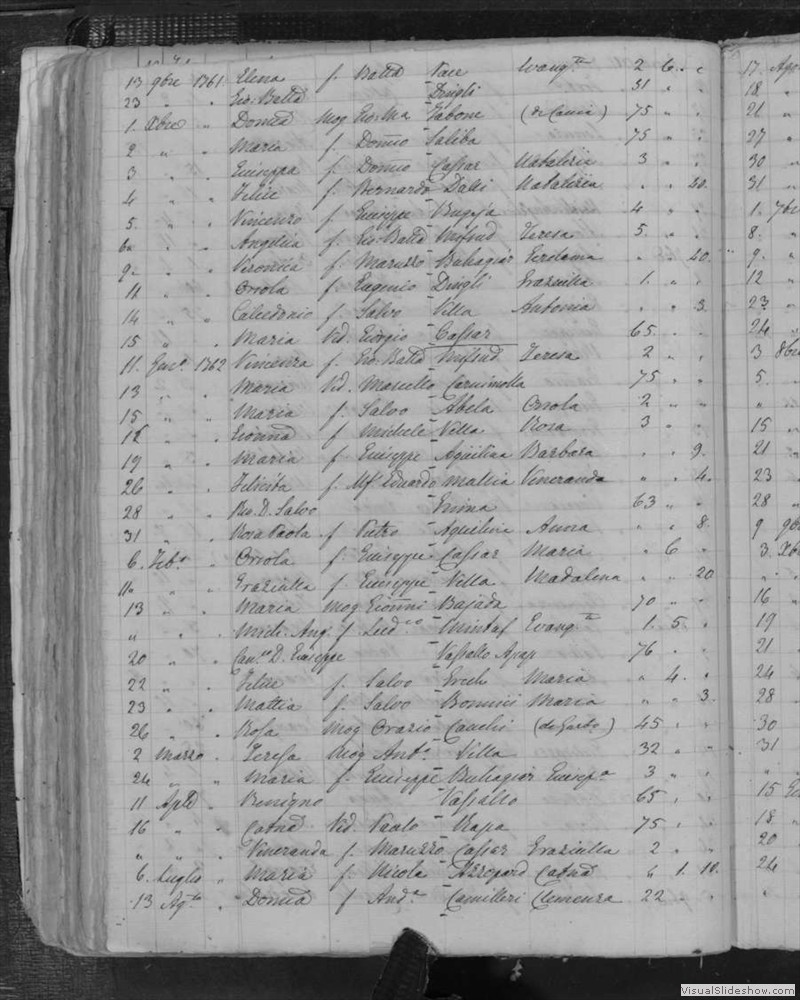 13 9bre 1761 Elena f. Battā Vace Evangta 2 6 "
23 " " Gio Battā Dingli 51 " "
1 Xbre " Domcā Mog Gio Ma Zabone 75 " "
2 " " Maria f. Domco Saliba 75 " "
3 " " Giuseppa f. Domco Cassar Natalizia 3 " "
4 " " Felice f. Bernardo Dalli Natalizia " " 20.
5. " " Vincenzo f. Giuseppe Bugeja 4 " "
6 " " Angelica f. Gio Battā Mifsud Teresa 5. " "
9 " " Veronica f. Maruzzo Buhagiar " " 20
11 " " Orsola f. Eugenio Dingli Graziulla 1. " "
14 " " Calcedonio f. Salvo Villa Antonia " " 3
15 " " Maria Vid. Giorgio Cassar 65 " "
11. Genro 1762 Vincenza f. Gio. Battā Mifsud Teresa 2 " "
13 " " Maria Vid. Marcello 75 " "
15 " " Maria f. Salvo Abela Orsola 2 " "
" " Gionnā f Michele Villa Rosa 3 " "
19 " " Maria f Giuseppe Aquilina Barbara " " 9.
26 " " Felicita f. Mf Eduardo Mattia Veneranda " " 4.
28 " " Rev. D. Salvo 63 " "
31 " " Rosa Paola f Pietro Aquilina Anna " " 8.
6. Febro " Orsola f. Giuseppe Cassar Maria " 6 "
11 " " Graziulla f Giuseppe Villa Madalena " " 20
13 " " Maria Mog Gionni Bajada 70 " "
" " " Mich. Ang. f Lud co Mintaf Evangta 1. 5. "
20 " " Canco D. Giuseppe Vassallo 76 " "
22 " " Felice f. Salvo Grech Maria " 4. "
23 " " Mattia f. Salvo Bonnici Maria " " 3.
26 " " Rosa Mog Orazio Cauchi 45 " "
2 Marzo " Teresa Mog Anto Villa 32 " "
24 " " Maria f. Giuseppe Buhagiar Giusepa 3 " "
11 Aple " Benigno Vassallo 65 " "
16 " " Catnā Vid. Paolo Rapa 75 " "
" " " Veneranda f. Maruzzo Cassar Graziulla 2 " "
6 Luglio " Maria f. Nicola Azzopard Catnā 6 1. 10.
13 Agto " Domcā f Anda Camilleri Clemenza 22 " "
17. Ago
18 "
21 "
27 "
30 "
31 "
1. 7b
8. "
9. "
12 "
23 "
24 "
3 8b
5. "
" "
15 "
21 "
23 "
28 "
9 9b
3. Xb
" "
16 "
19 "
21 "
24 "
28 "
30 "
31 "
" "
15 Ge
18 "
20
24
VisualSlideshow.com